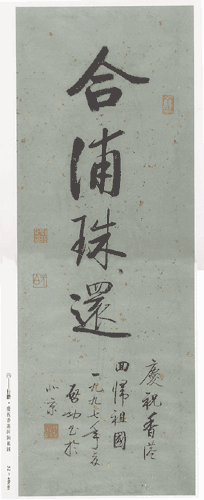 合浦珠還
慶祝香港
回歸祖國
一九九七年夏
啟功書於
北京